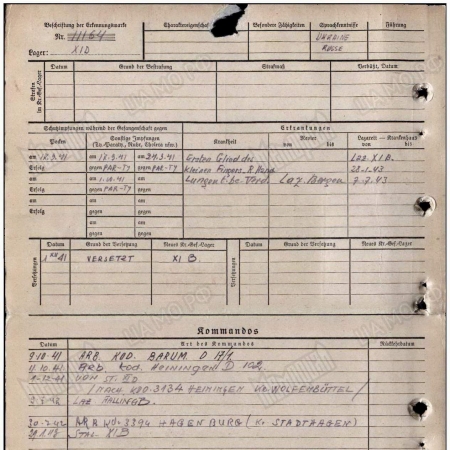 Beschriftung der Erkennungsmarke
Nr. 11164
Lager: XI D
Charaktereigenschaften
Besondere Fähigkeiten
Sprachkenntnisse
UKRAINE
RUSSE
Führung
Strafen im Kr.-Gef.-Lager
Datum Grund der Bestrafung Strafmaß Verbüßt, Datum
Schutzimpfungen während der Gefangenschaft gegen
Erkrankungen
Pocken
Sonstige Impfungen
(Ty.-Paraty., Ruhr, Cholera usw.)
Krankheit
Revier
von bis
Lazarett — Krankenhaus
von bis
am 18.9.41 am 18.9.41 am 24.9.41
Erfolg gegen PAR-TY gegen PAR-TY
am am 1.10.41 am
Erfolg gegen PAR-TY gegen
am am am
Erfolg gegen gegen
am am
gegen gegen
Erstes Glied des Laz. XI B.
kleinen Fingers, R. Hand 28.1.43
Lungen Laz. 7.7.43
Versetzungen
Datum Grund der Versetzung Neues Kr.-Gef.-Lager
41 VERSETZT XI B.
Versetzungen
Datum Grund der Versetzung Neues Kr.-Gef.-Lager
Kommandos
Datum Art des Kommandos Rückkehrdatum
9.10.41 ARB. KOD. BARUM. D 17/1
11.10.41 ARB. Kod. Heiningen D 102
VON ST. XI D
/NACH KDO. 3134 HEININGEN Kr. WOLFENBÜTTEL/
LAZ.
30.7.42 3394 HAGENBURG (Kr. STADTHAGEN)
STAL. XI B
ЦАМО РФ